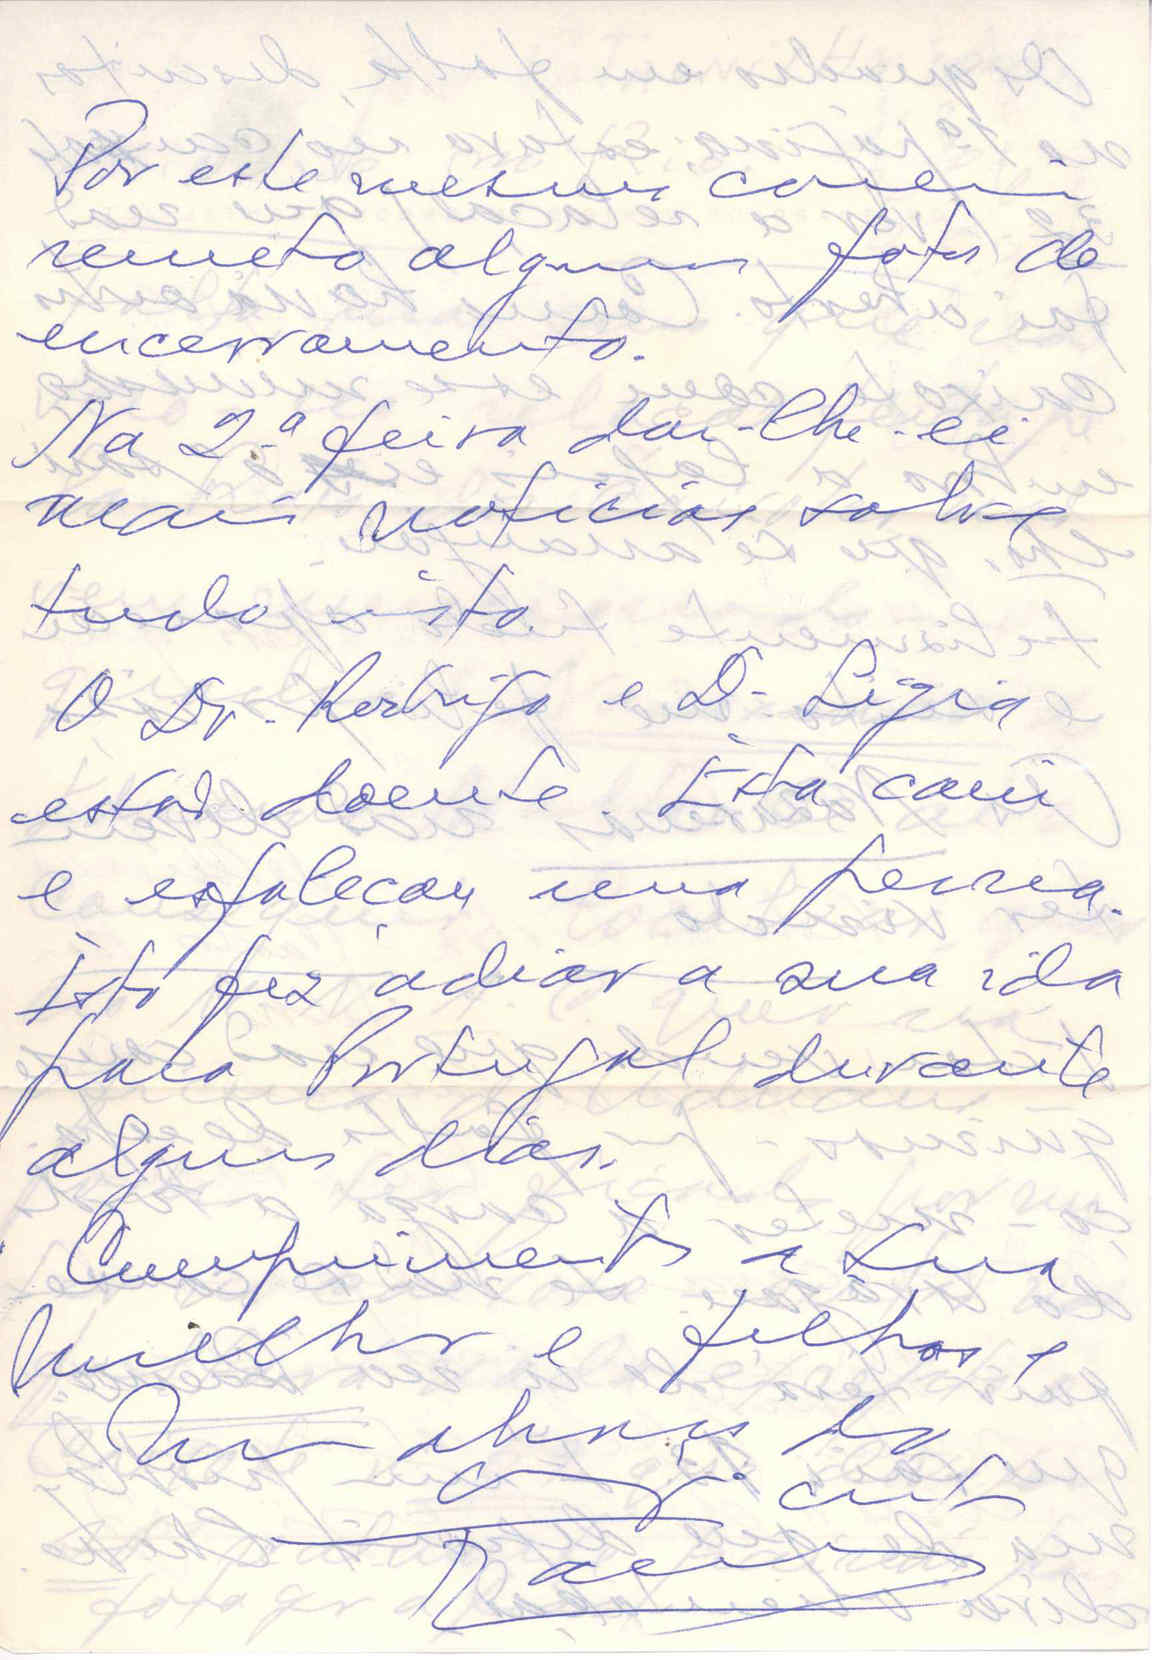 Por este mesmo correio
remeto algumas fotos de
encerramento.
Na 2.ª feira dar-lhe-ei
mais noticias sobre
tudo isto.
O Dr. Rodrigo e D. Ligia
estão doente. Esta caiu
e esfalecou uma perna.
Isto fez adiar a sua ida
para Portugal durante
alguns dias.
Cumprimentos a sua
mulher e filhos e
um abraço do